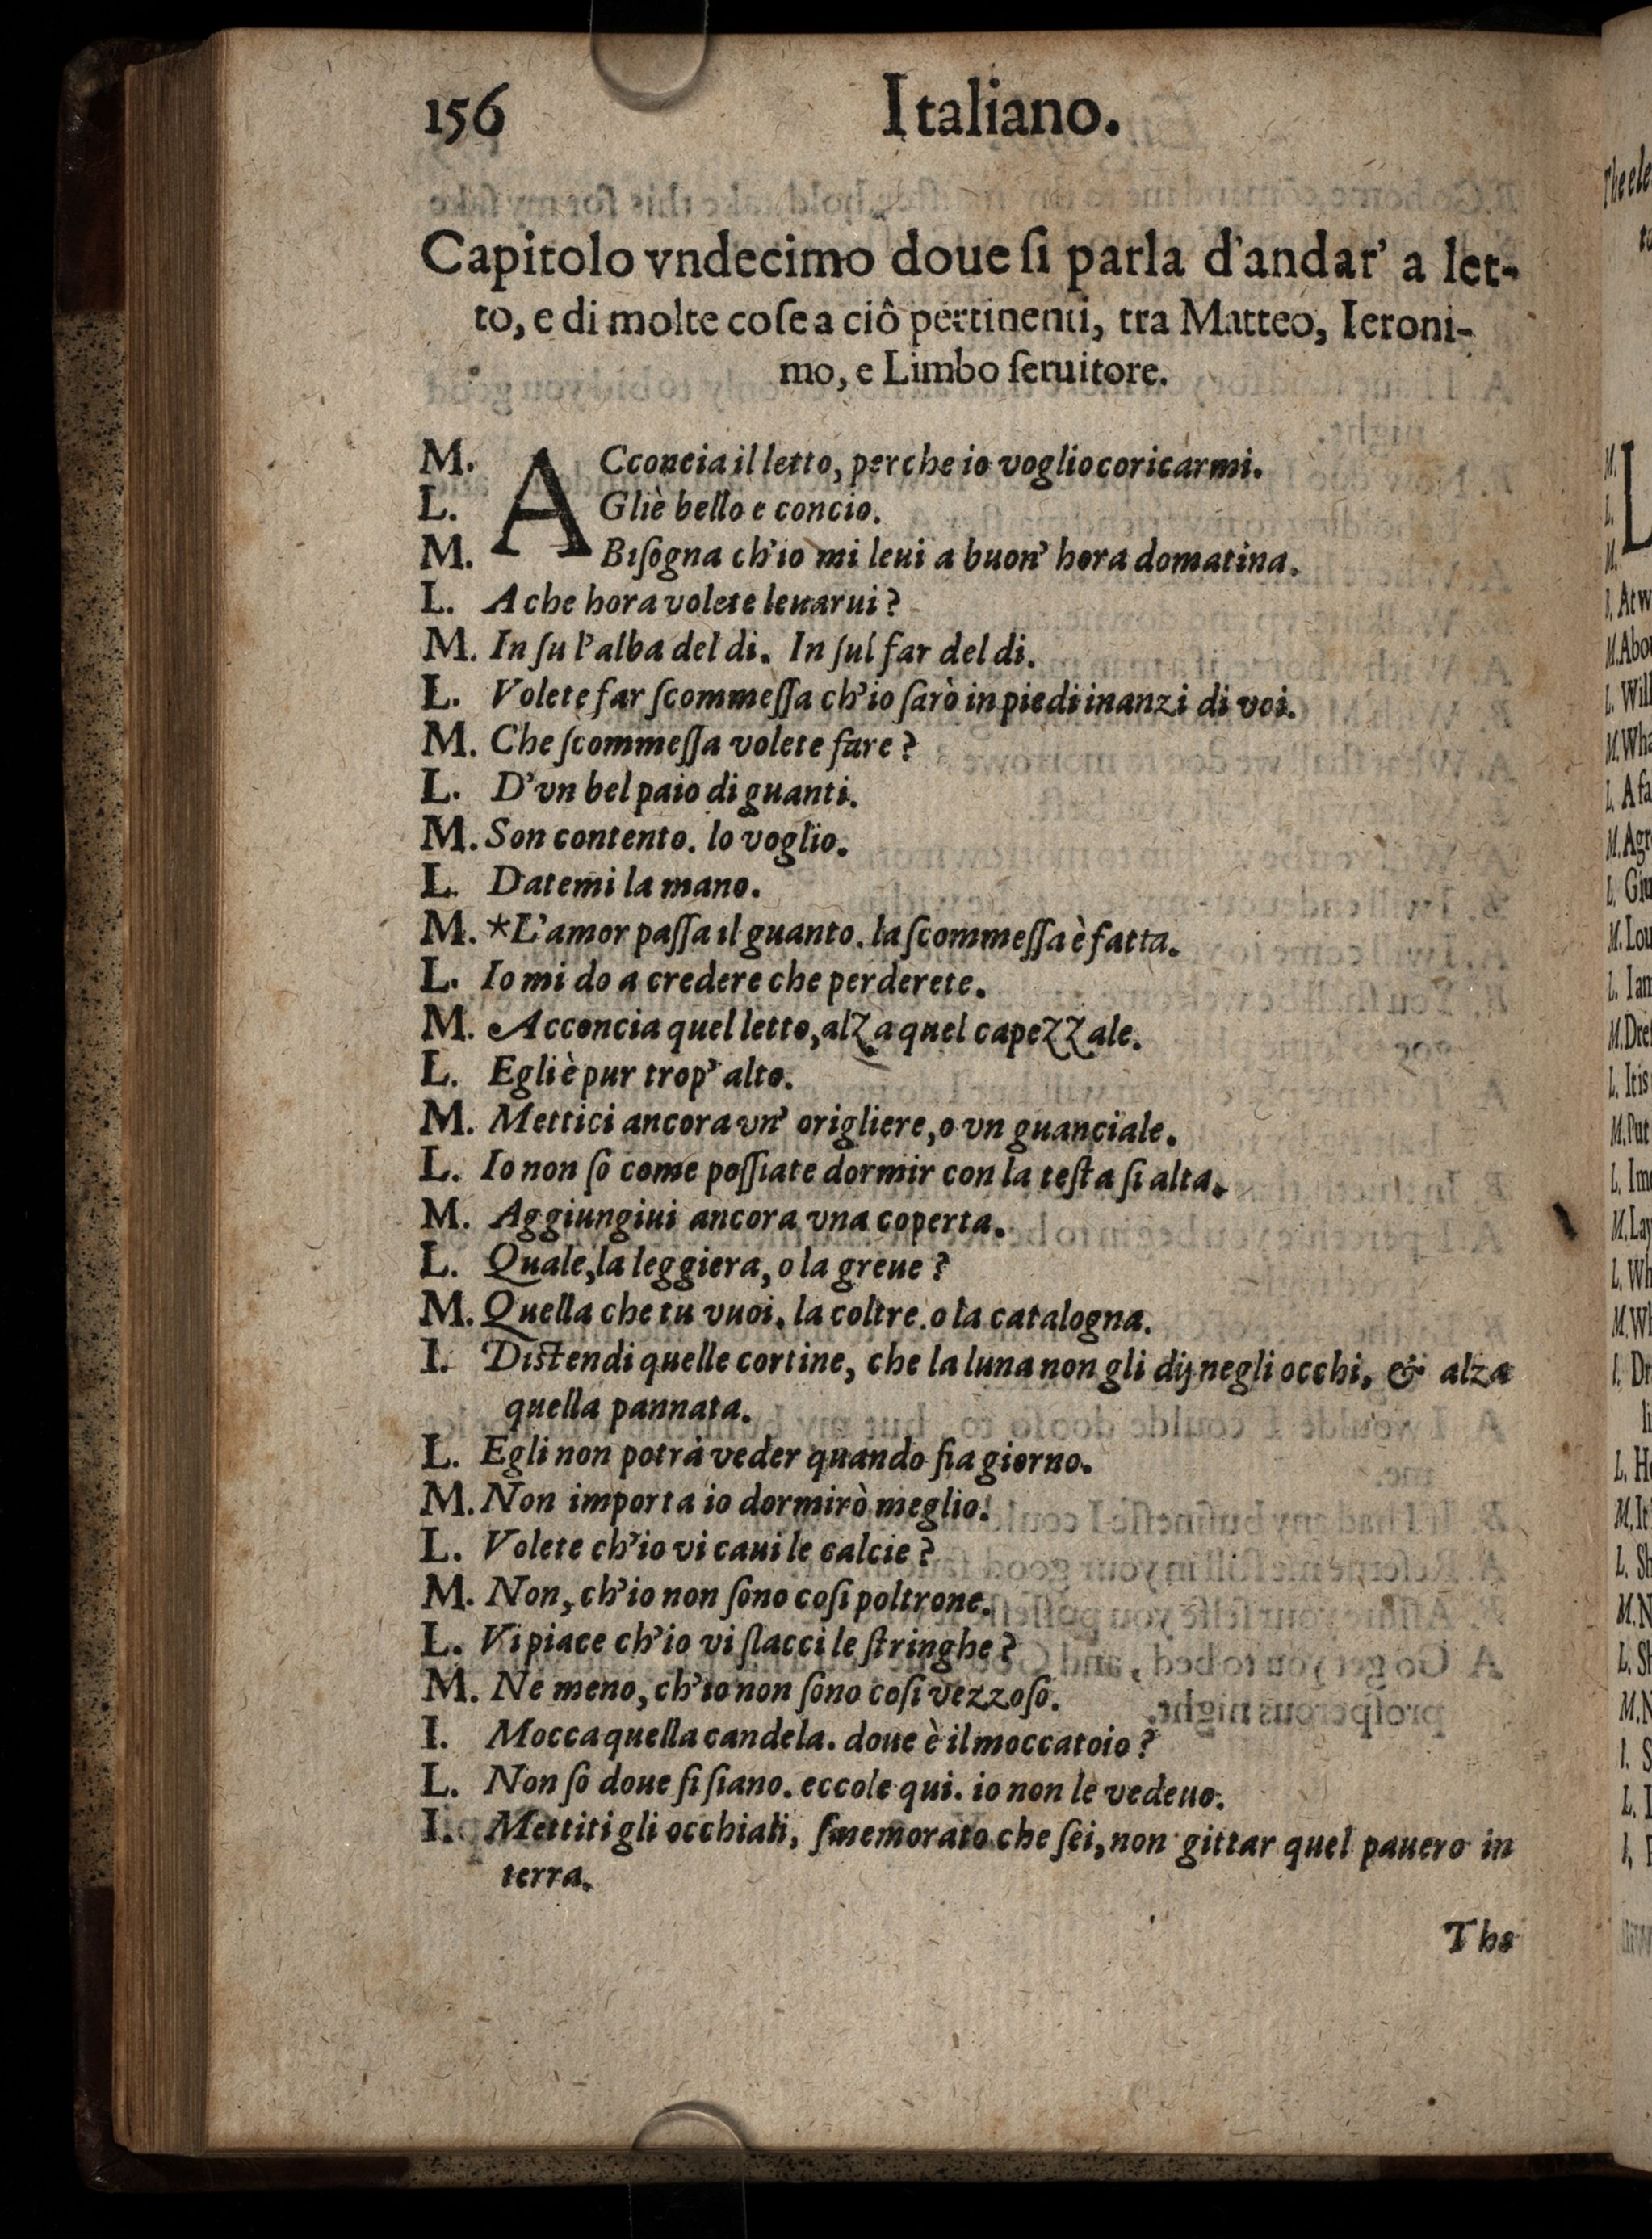 156 Italiano.
Capitolo vndecimo doue ſi parla d'andar' a let-
to, e di molte coſe a ciô pertinenti, tra Matteo, Ieroni-
mo, e Limbo ſeruitore.
M. ACconcia il letto, perche io voglio coricarmi.
L. Gliè bello e concio.
M. Biſogna ch'io mi leui a buon' hora domatina.
L. A che hora volete leuarui?
M. In ſu l'alba del di. In ſul far del di.
L. Volete far ſcommeſſa ch'io ſarò in piedi inanzi di voi.
M. Che ſcommeſſa volete fare?
L. D'vn bel paio di guanti.
M. Son contento. lo voglio.
L. Datemi la mano.
M. *L'amor paſſa il guanto. la ſcommeſſa è fatta.
L. Io mi do a credere che perderete.
M. Acconcia quel letto, alza quel capezzale.
L. Egli è pur trop' alto.
M. Mettici ancora vn' origliere, o vn guanciale.
L. Io non ſo come poſſiate dormir con la teſta ſi alta.
M. Aggiungiui ancora vna coperta.
L. Quale, la leggiera, o la greue?
M. Quella che tu vuoi. la coltre. o la catalogna.
I. Diſtendi quelle cortine, che la luna non gli dij negli occhi, & alza
quella pannata.
L. Egli non potrà veder quando ſia giorno.
M. Non importa io dormirò meglio.
L. Volete ch'io vi caui le calcie?
M. Non, ch'io non ſono coſi poltrone.
L. Vi piace ch'io vi ſlacci le ſtringhe?
M. Ne meno, ch'io non ſono coſi vezzoſo.
I. Mocca quella candela. doue è il moccatoio?
L. Non ſo doue ſi ſiano. eccole qui. io non le vedeuo.
I. Mettiti gli occhiali, ſmemorato che ſei, non gittar quel pauero in
terra.
The